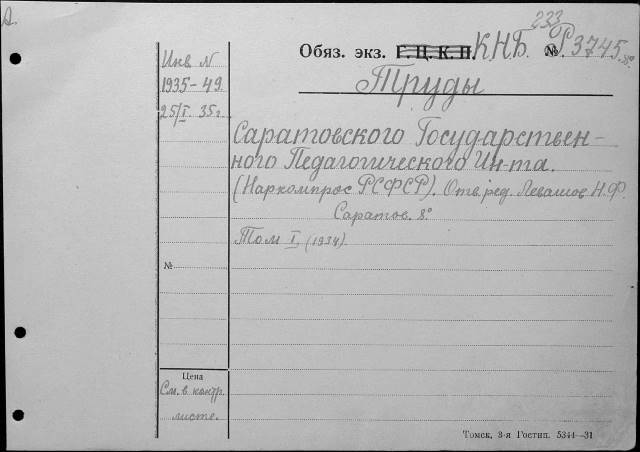 А.
233
Обяз. экз. Г. Ц. К. П. КНБ. № Р3745 8°
Труды
Инв N
1935-49.
25/I. 35г.
Саратовского Государствен-
ного Педагогического Ин-та.
(Наркомпрос РСФСР). Отв. ред. Левашов Н.Ф.
Саратов. 8°
Том I. (1934).
№
Цена
См. в контр.
листе.
Томск, 3-я Гостип. 5344—31